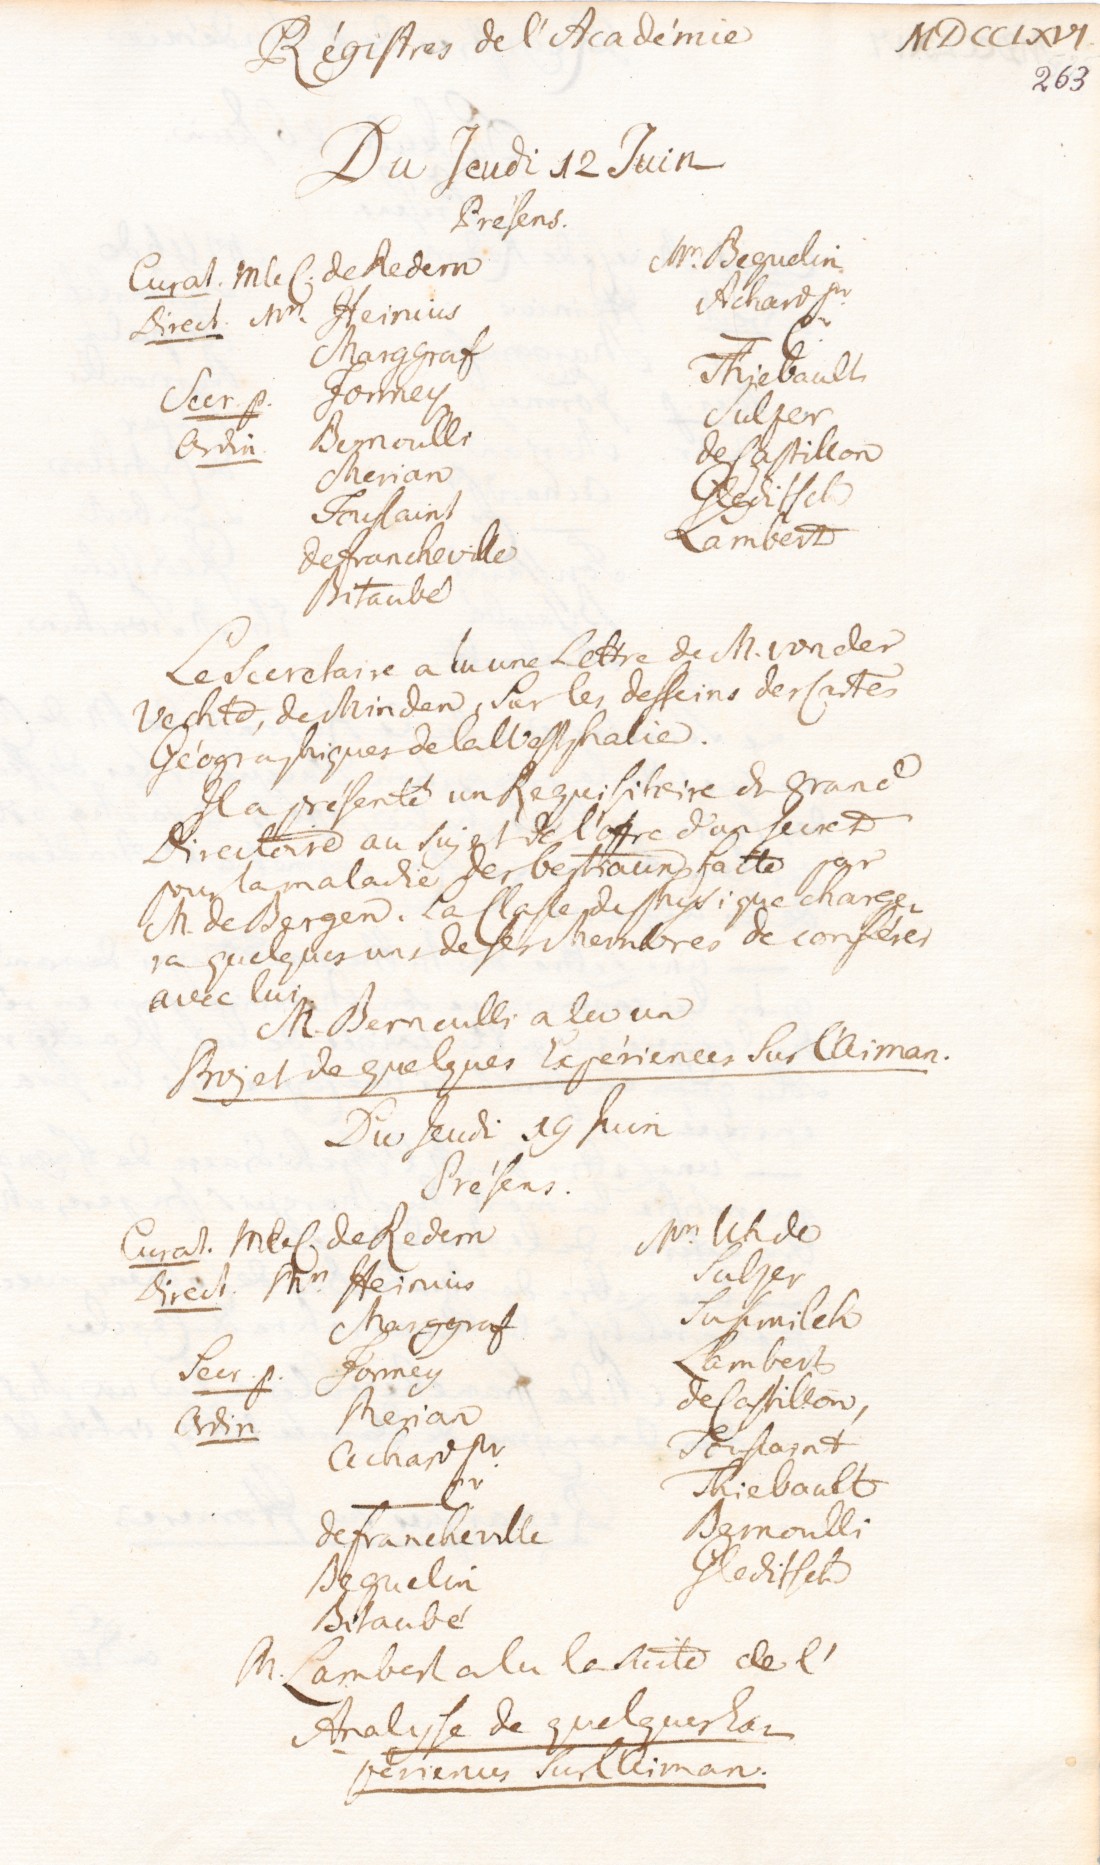 Régistres de l'Académie
MDCCLXVI.
263
Du Jeudi 12 Juin
Présens.
Curat. M le C. de Redern
Direct. Mrs. Heinius
Marggraf
Secr. p. Formey
Ordin. Bernoulli
Merian
Toussaint
de Francheville
Bitaubé
Mrs. Beguelin
Achard pr
— Cr
Thiebault
Sulzer
de Castillon
Gleditsch
Lambert
Le Secretaire a lu une Lettre de M. von der
Vechte, de Minden, sur les desseins des Cartes
Géographiques de la Westphalie.
Il a présenté un Requisitoire du grand
Directoire au sujet de l'offre d'un secret
pour la maladie des bestiaux faite par
M. de Bergen. La Classe de Physique charge-
ra quelques uns de ses Membres de conférer
avec lui.
M. Bernoulli a lu un
Projet de quelques Expériences sur l'Aiman.
Du Jeudi 19 Juin
Présens.
Curat. M le C. de Redern
Direct. Mrs Heinius
Marggraf
Secr. p. Formey
Ordin Merian
Achard pr.
— Cr
de Francheville
Beguelin
Bitaubé
Mrs Uhde
Sulzer
Sussmilch
Lambert
de Castillon,
Toussaint
Thiebault
Bernoulli
Gleditsch
M. Lambert a lu la suite de l'
Analyse de quelques Ex-
périences sur l'Aiman.